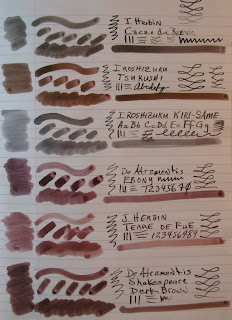 J. Herbin
Cacao du Brésil
Iroshizuku
Tsukushi
Abcdefg
Iroshizuku Kiri-Same
Aa Bb Cc Dd Ee Ff Gg
De Atramentis
Ebony
1234567
J. Herbin
Terre de Feu
123456789
De Atramentis
Shakespeare
Dark Brown